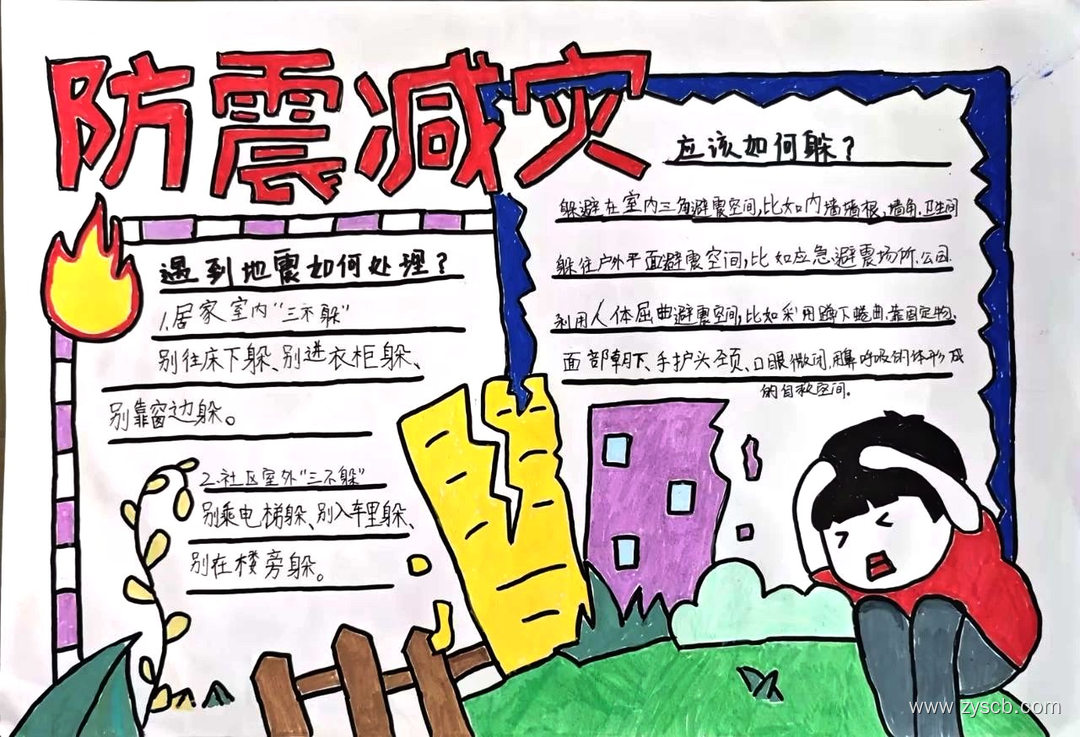 防震减灾
遇到地震如何处理？
1.居家室内“三不躲”
别往床下躲、别进衣柜躲、
别靠窗边躲。
2.社区室外“三不躲”
别乘电梯躲、别入车里躲、
别在楼旁躲。
应该如何躲？
躲避在室内三角避震空间,比如内墙墙根,墙角.卫生间
躲往户外平面避震空间,比如应急避震场所.公园.
利用人体屈曲避震空间,比如采用蹲下蜷曲.靠固定物、
面部朝下、手护头颈、口眼微闭,用鼻呼吸的体形成
的自救空间.
www.zyscb.com